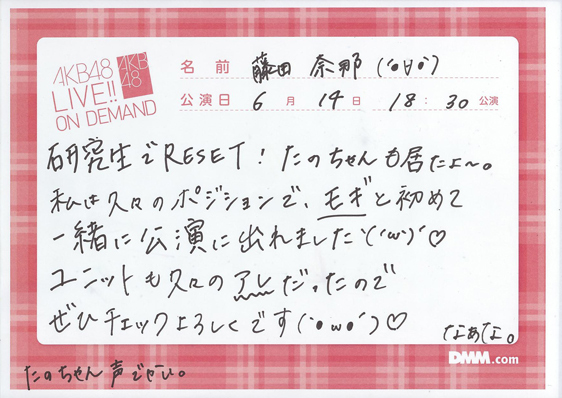 AKB48
LIVE!!
ON DEMAND
AKB
48
名前 藤田 奈那 (´°∀°`)
公演日 6月14日 18:30公演
研究生でRESET! たのちゃんも居たよ～。
私は久々のポジションで、モギと初めて
一緒に公演に出れました ヽ(´ω`)ノ♡
ユニットも久々のアレだったので
ぜひチェックよろしくです(´°ω°`)♡
なぁな。
DMM.com
たのちゃん 声でかい。